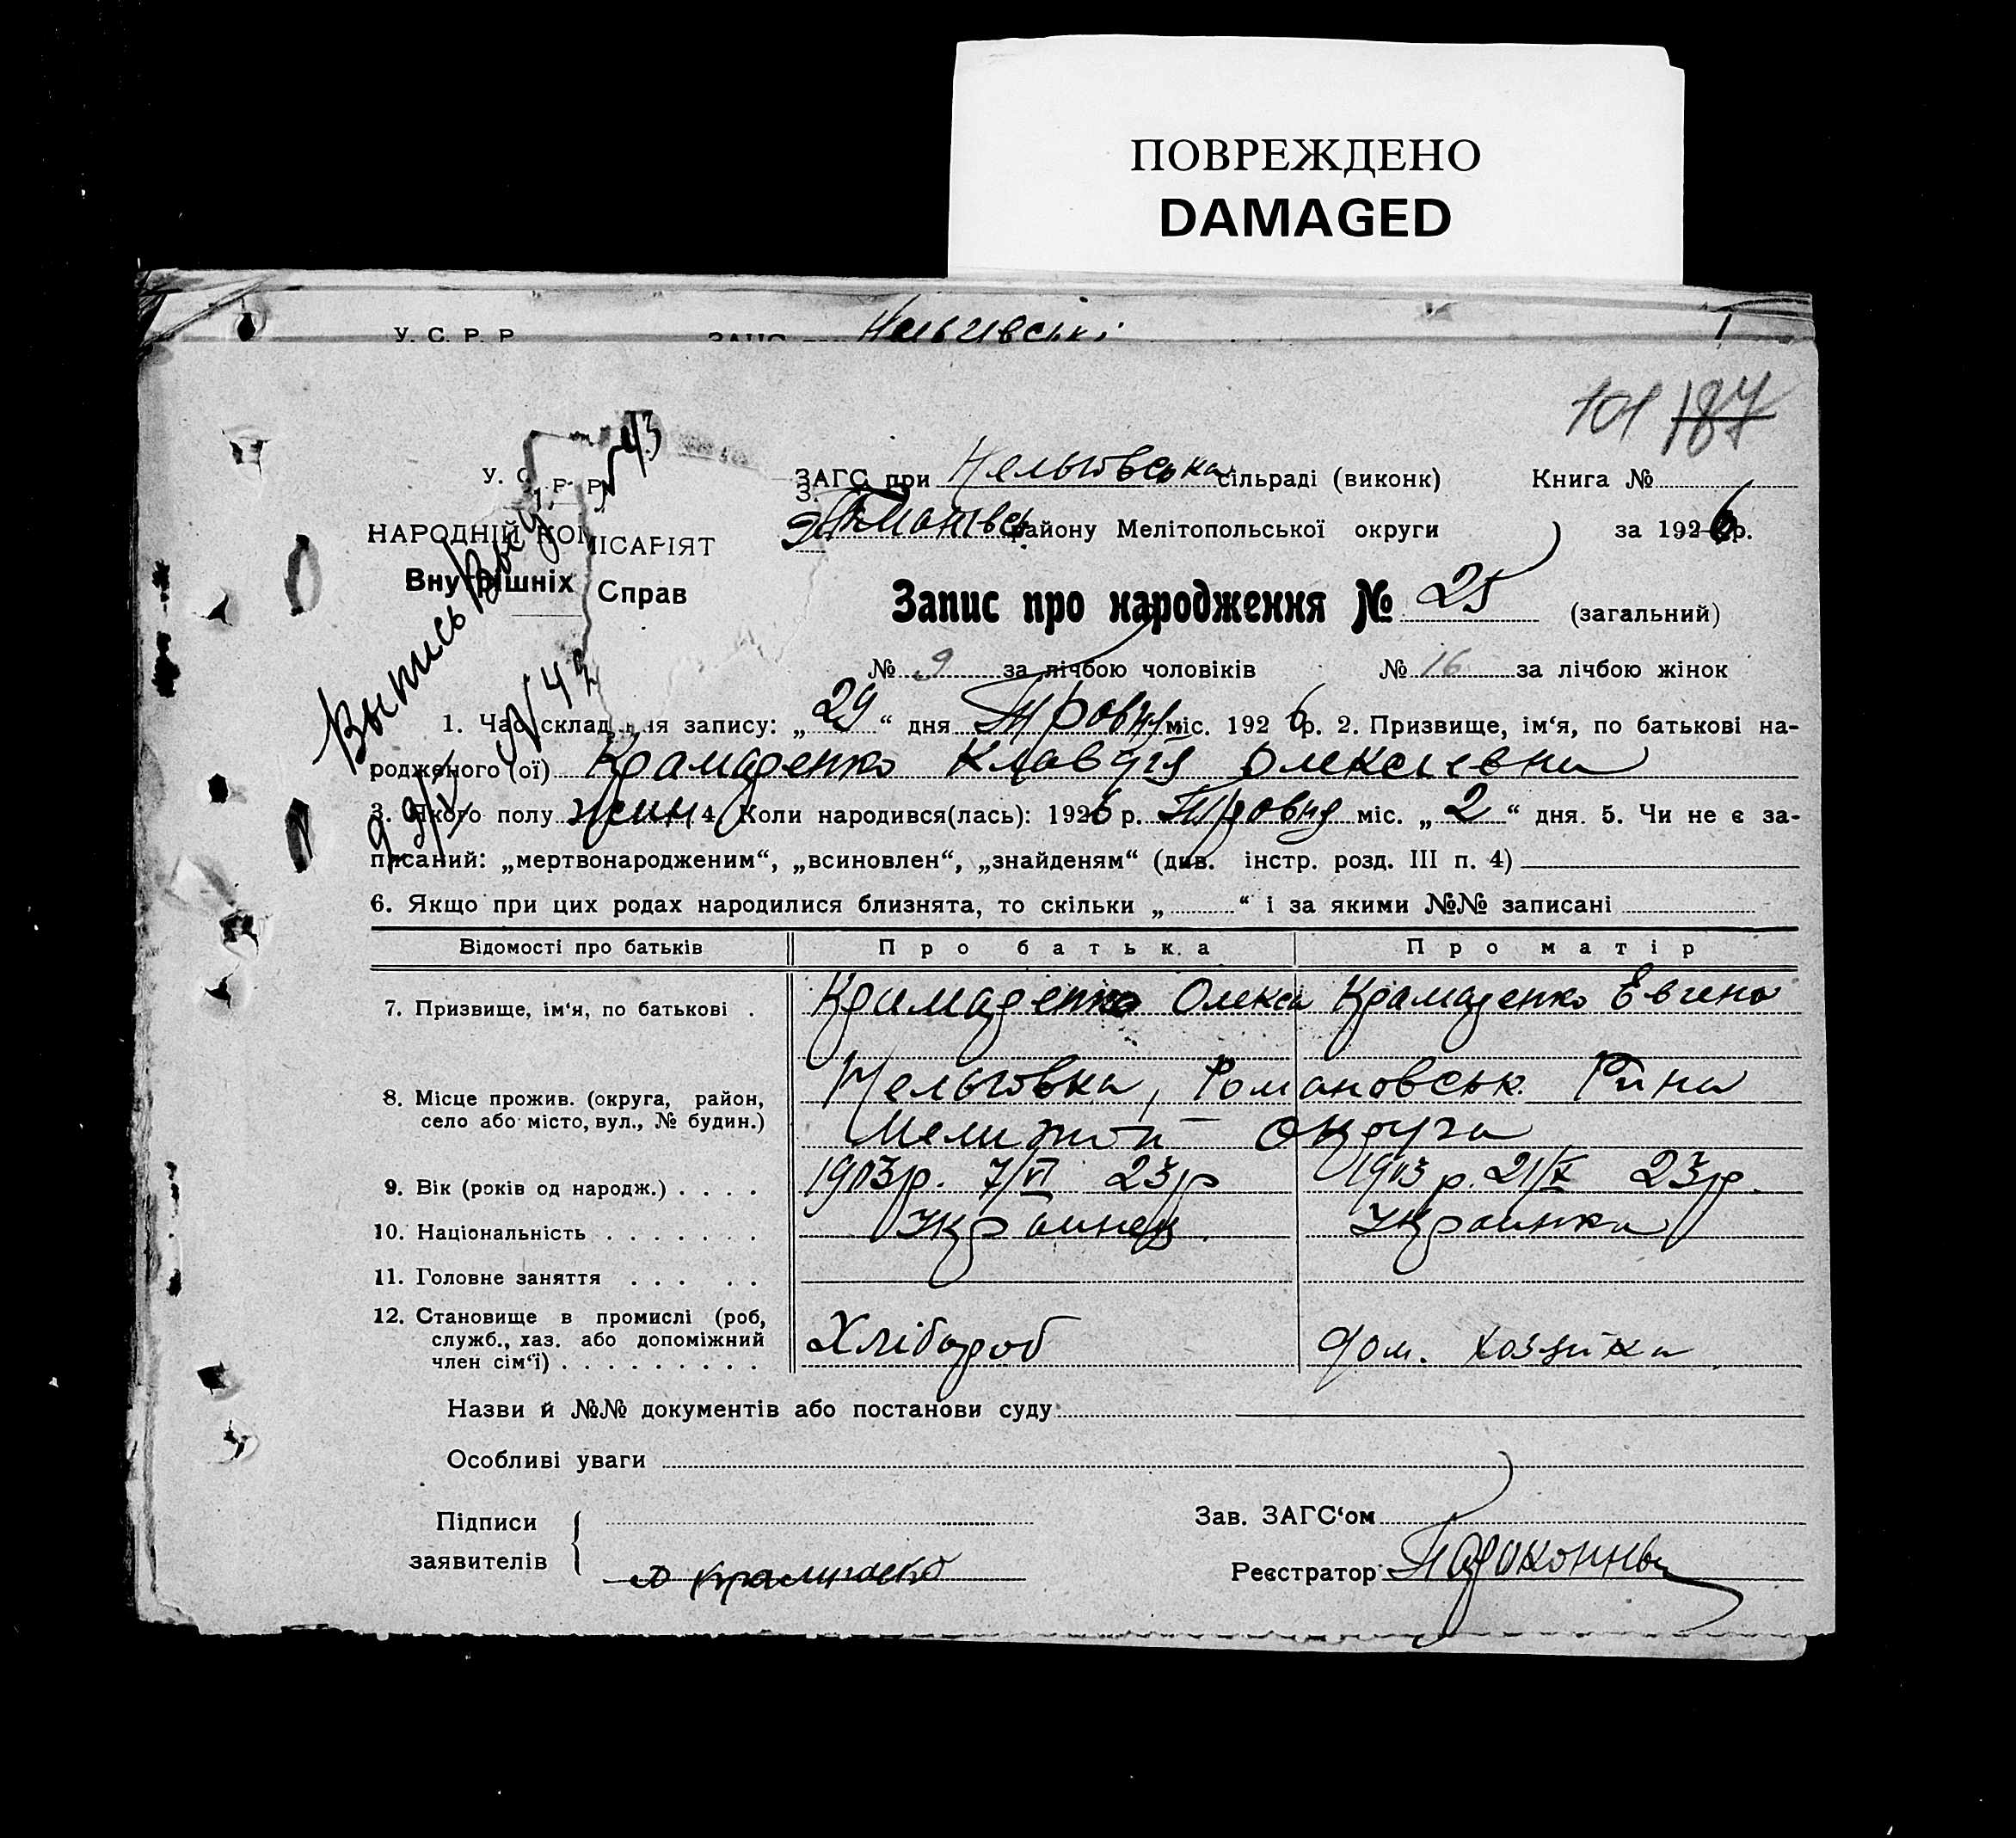 ПОВРЕЖДЕНО
DAMAGED
У. С. Р. Р.
101 187
У. С. Р. Р.
ЗАГС при Нельговська сільраді (виконк) Книга №
району Мелітопольської округи за 1926 р.
НАРОДНІЙ КОМІСАРІЯТ
Внутрішніх Справ
Запис про народження № 25 (загальний)
№ 9 за лічбою чоловіків № 16 за лічбою жінок
Выпись
1. Час складання запису: „29“ дня Травня міс. 1926 р. 2. Призвище, ім‘я, по батькові на-
родженого (ої) Крамаренко Клавдія Олексіевна
3. Якого полу жин. 4. Коли народився(лась): 1926 р. Травня міс. „2“ дня. 5. Чи не є за-
писаний: „мертвонародженим“, „всиновлен“, „знайденям“ (див. інстр. розд. III п. 4)
6. Якщо при цих родах народилися близнята, то скільки „ “ і за якими №№ записані
Відомості про батьків Про батька Про матір
7. Призвище, ім‘я, по батькові . Крамаренко Олекса Крамаренко Евгена
8. Місце прожив. (округа, район, село або місто, вул., № будин.) Нельговка, Романовськ. Р-на
округа
9. Вік (років од народж.) . . . . 1903р. 7/VI 23р 1903 р. 21/X 23р.
10. Національність . . . . . . . Украинец Украинка
11. Головне заняття . . . . .
12. Становище в промислі (роб, служб., хаз. або допоміжний член сім‘ї) . . . . . . . . . Хлібороб дом. хозяйка
Назви й №№ документів або постанови суду
Особливі уваги
Підписи
заявителів
Зав. ЗАГС‘ом
Реєстратор